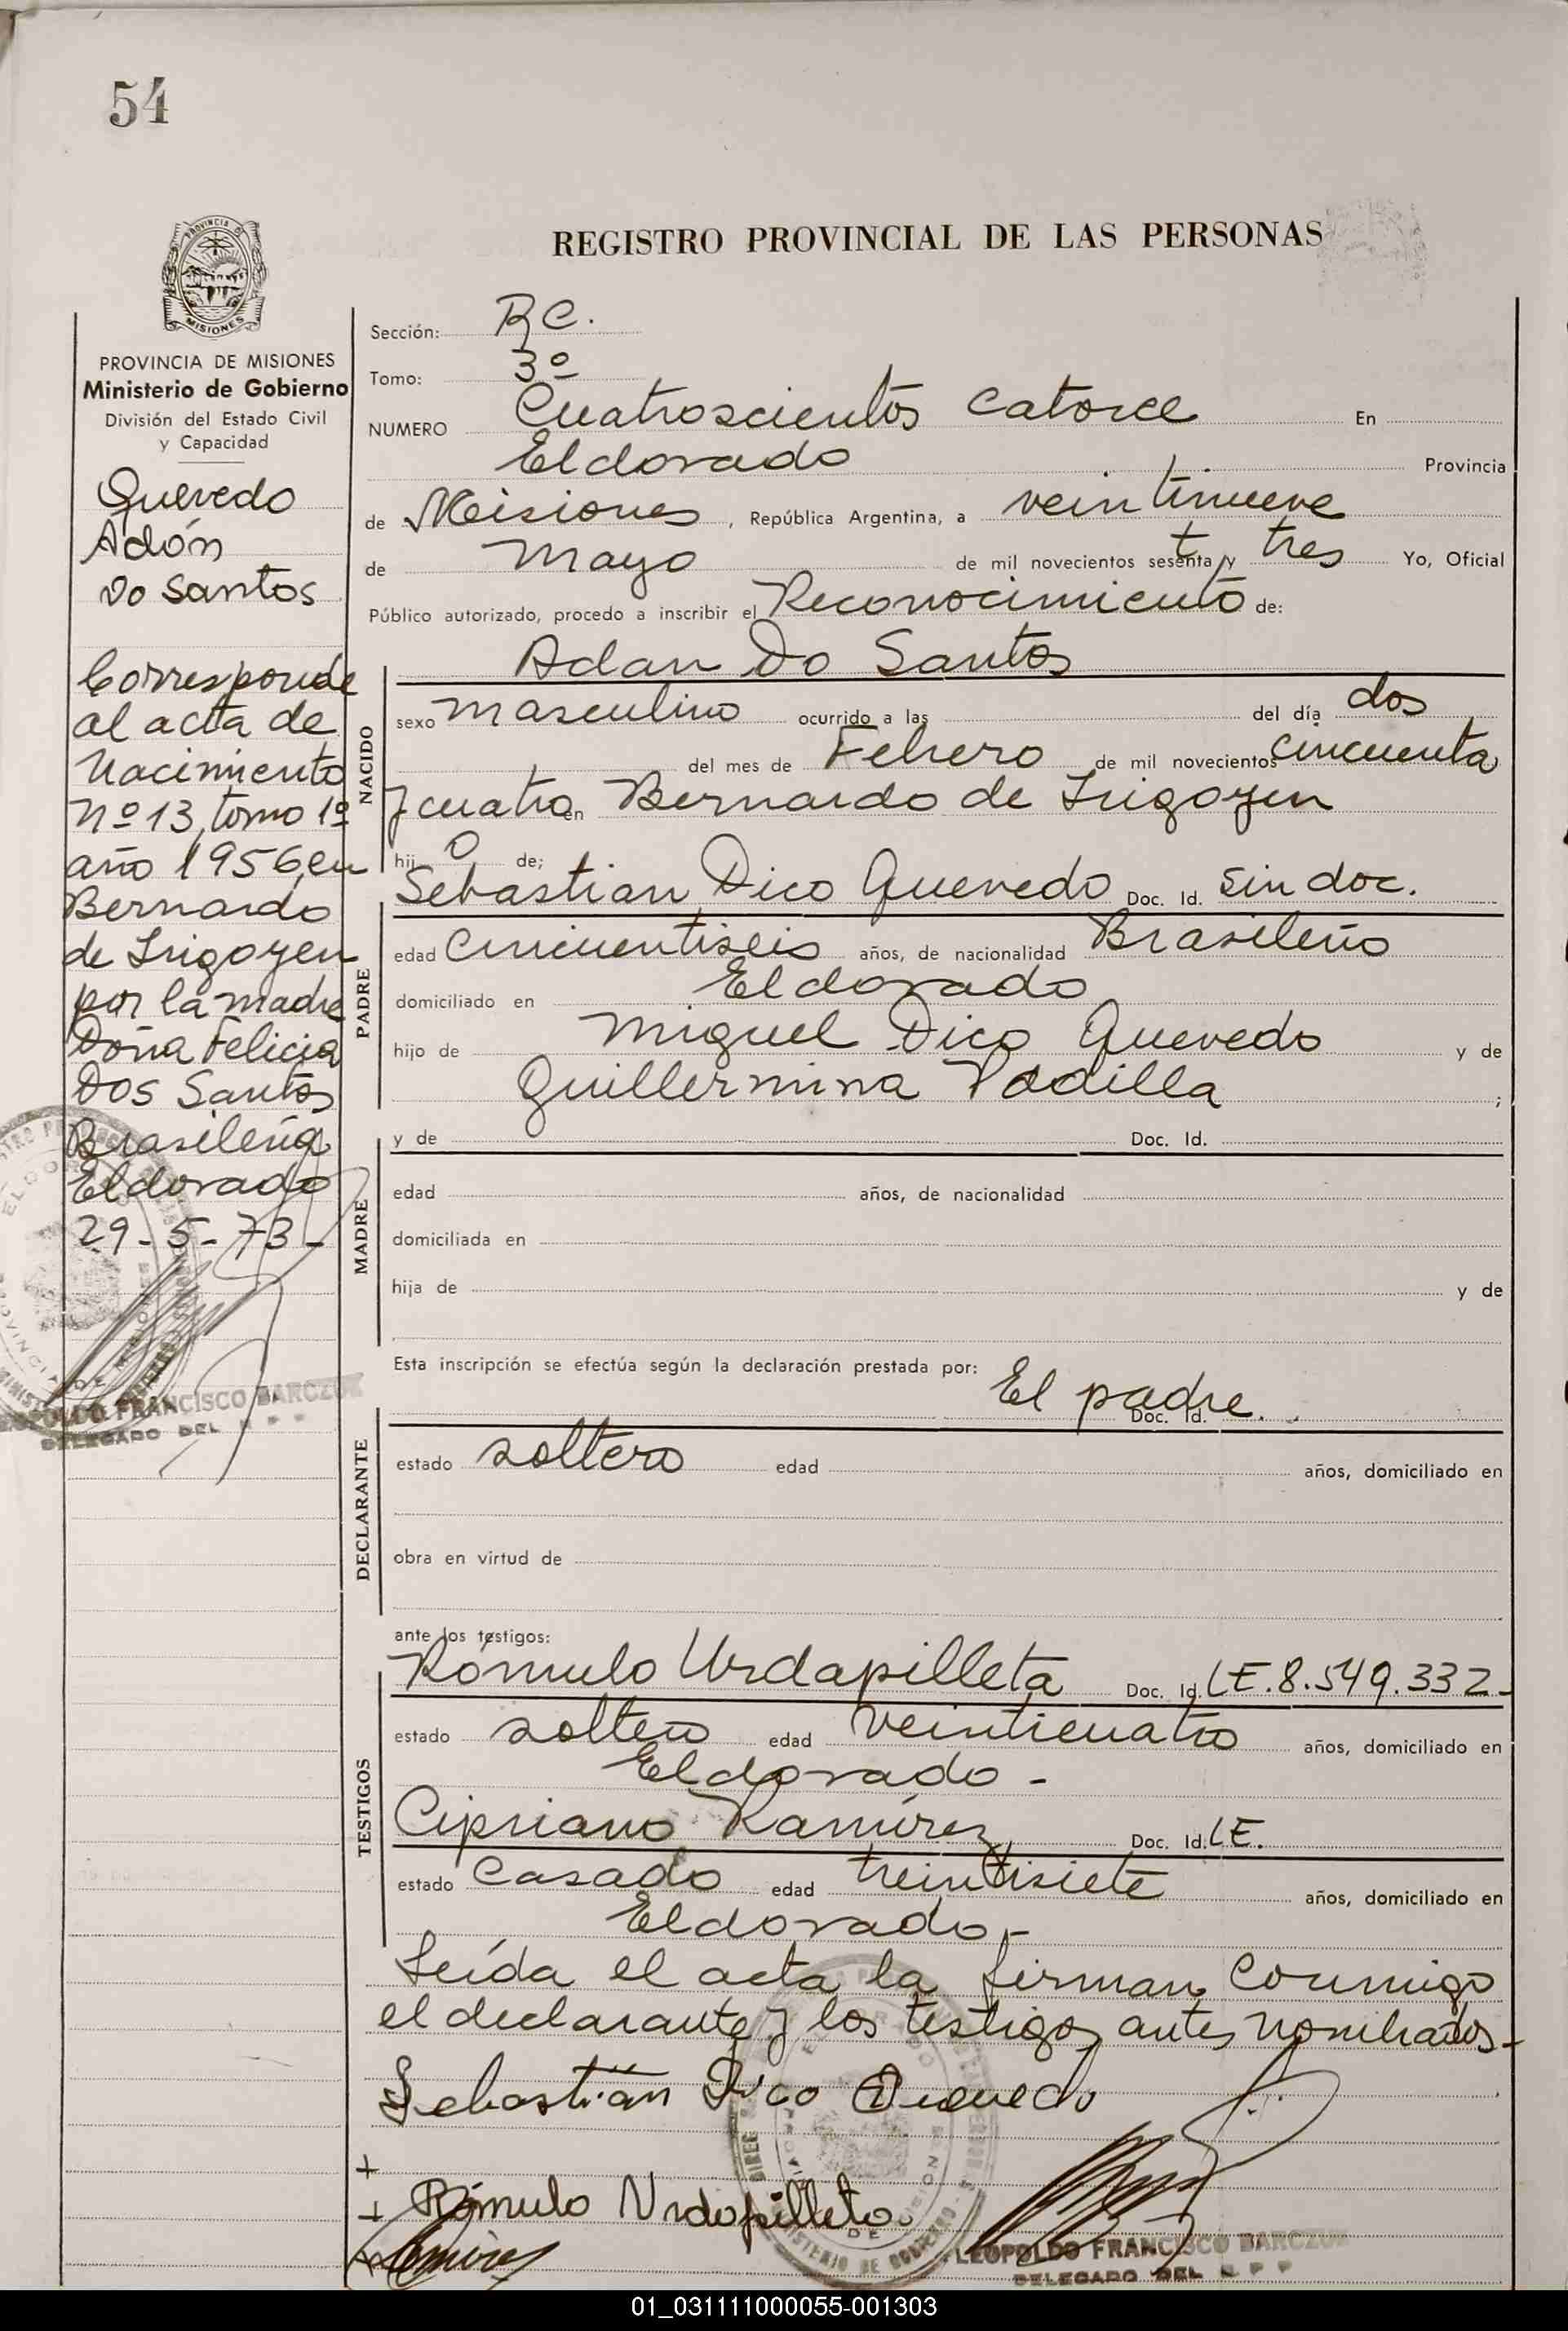 54
PROVINCIA DE
MISIONES
REGISTRO PROVINCIAL DE LAS PERSONAS
PROVINCIA DE MISIONES
Ministerio de Gobierno
División del Estado Civil
y Capacidad
Quevedo
Adán
Do Santos
Corresponde
al acta de
Nacimiento
Nº 13, tomo 1º
año 1956, en
Bernardo
de Irigoyen
por la madre
Doña Felicia
Dos Santos
Brasileña
Eldorado
29-5-73-
LEOPOLDO FRANCISCO BARCZUK
DELEGADO DEL R P P
Sección: RC.
Tomo: 3º
NUMERO Cuatroscientos catorce En
Eldorado Provincia
de Misiones, República Argentina, a veintinueve
de Mayo de mil novecientos sesenta y tres Yo, Oficial
Público autorizado, procedo a inscribir el Reconocimiento de:
Adan Do Santos
NACIDO
sexo masculino ocurrido a las del día dos
del mes de Febrero de mil novecientos cincuenta
y cuatro en Bernardo de Irigoyen
hij o de;
PADRE
Sebastian Dico Quevedo Doc. Id. sin doc.
edad cincuentiseis años, de nacionalidad Brasileño
domiciliado en Eldorado
hijo de Miguel Dico Quevedo y de
Guillermina Padilla ;
MADRE
y de Doc. Id.
edad años, de nacionalidad
domiciliada en
hija de y de
Esta inscripción se efectúa según la declaración prestada por:
DECLARANTE
El padre. Doc. Id.
estado soltero edad años, domiciliado en
obra en virtud de
ante los testigos:
TESTIGOS
Rómulo Urdapilleta Doc. Id. LE.8.549.332-
estado soltero edad veinticuatro años, domiciliado en
Eldorado-
Cipriano Ramírez Doc. Id. LE.
estado casado edad treintisiete años, domiciliado en
Eldorado-
Leída el acta la firman conmigo
el declarante y los testigos antes nombrados-
Sebastián Dico Quevedo
+
+ Rómulo Urdapilleta
Ramírez
LEOPOLDO FRANCISCO BARCZUK
DELEGADO DEL R P P
01_031111000055-001303